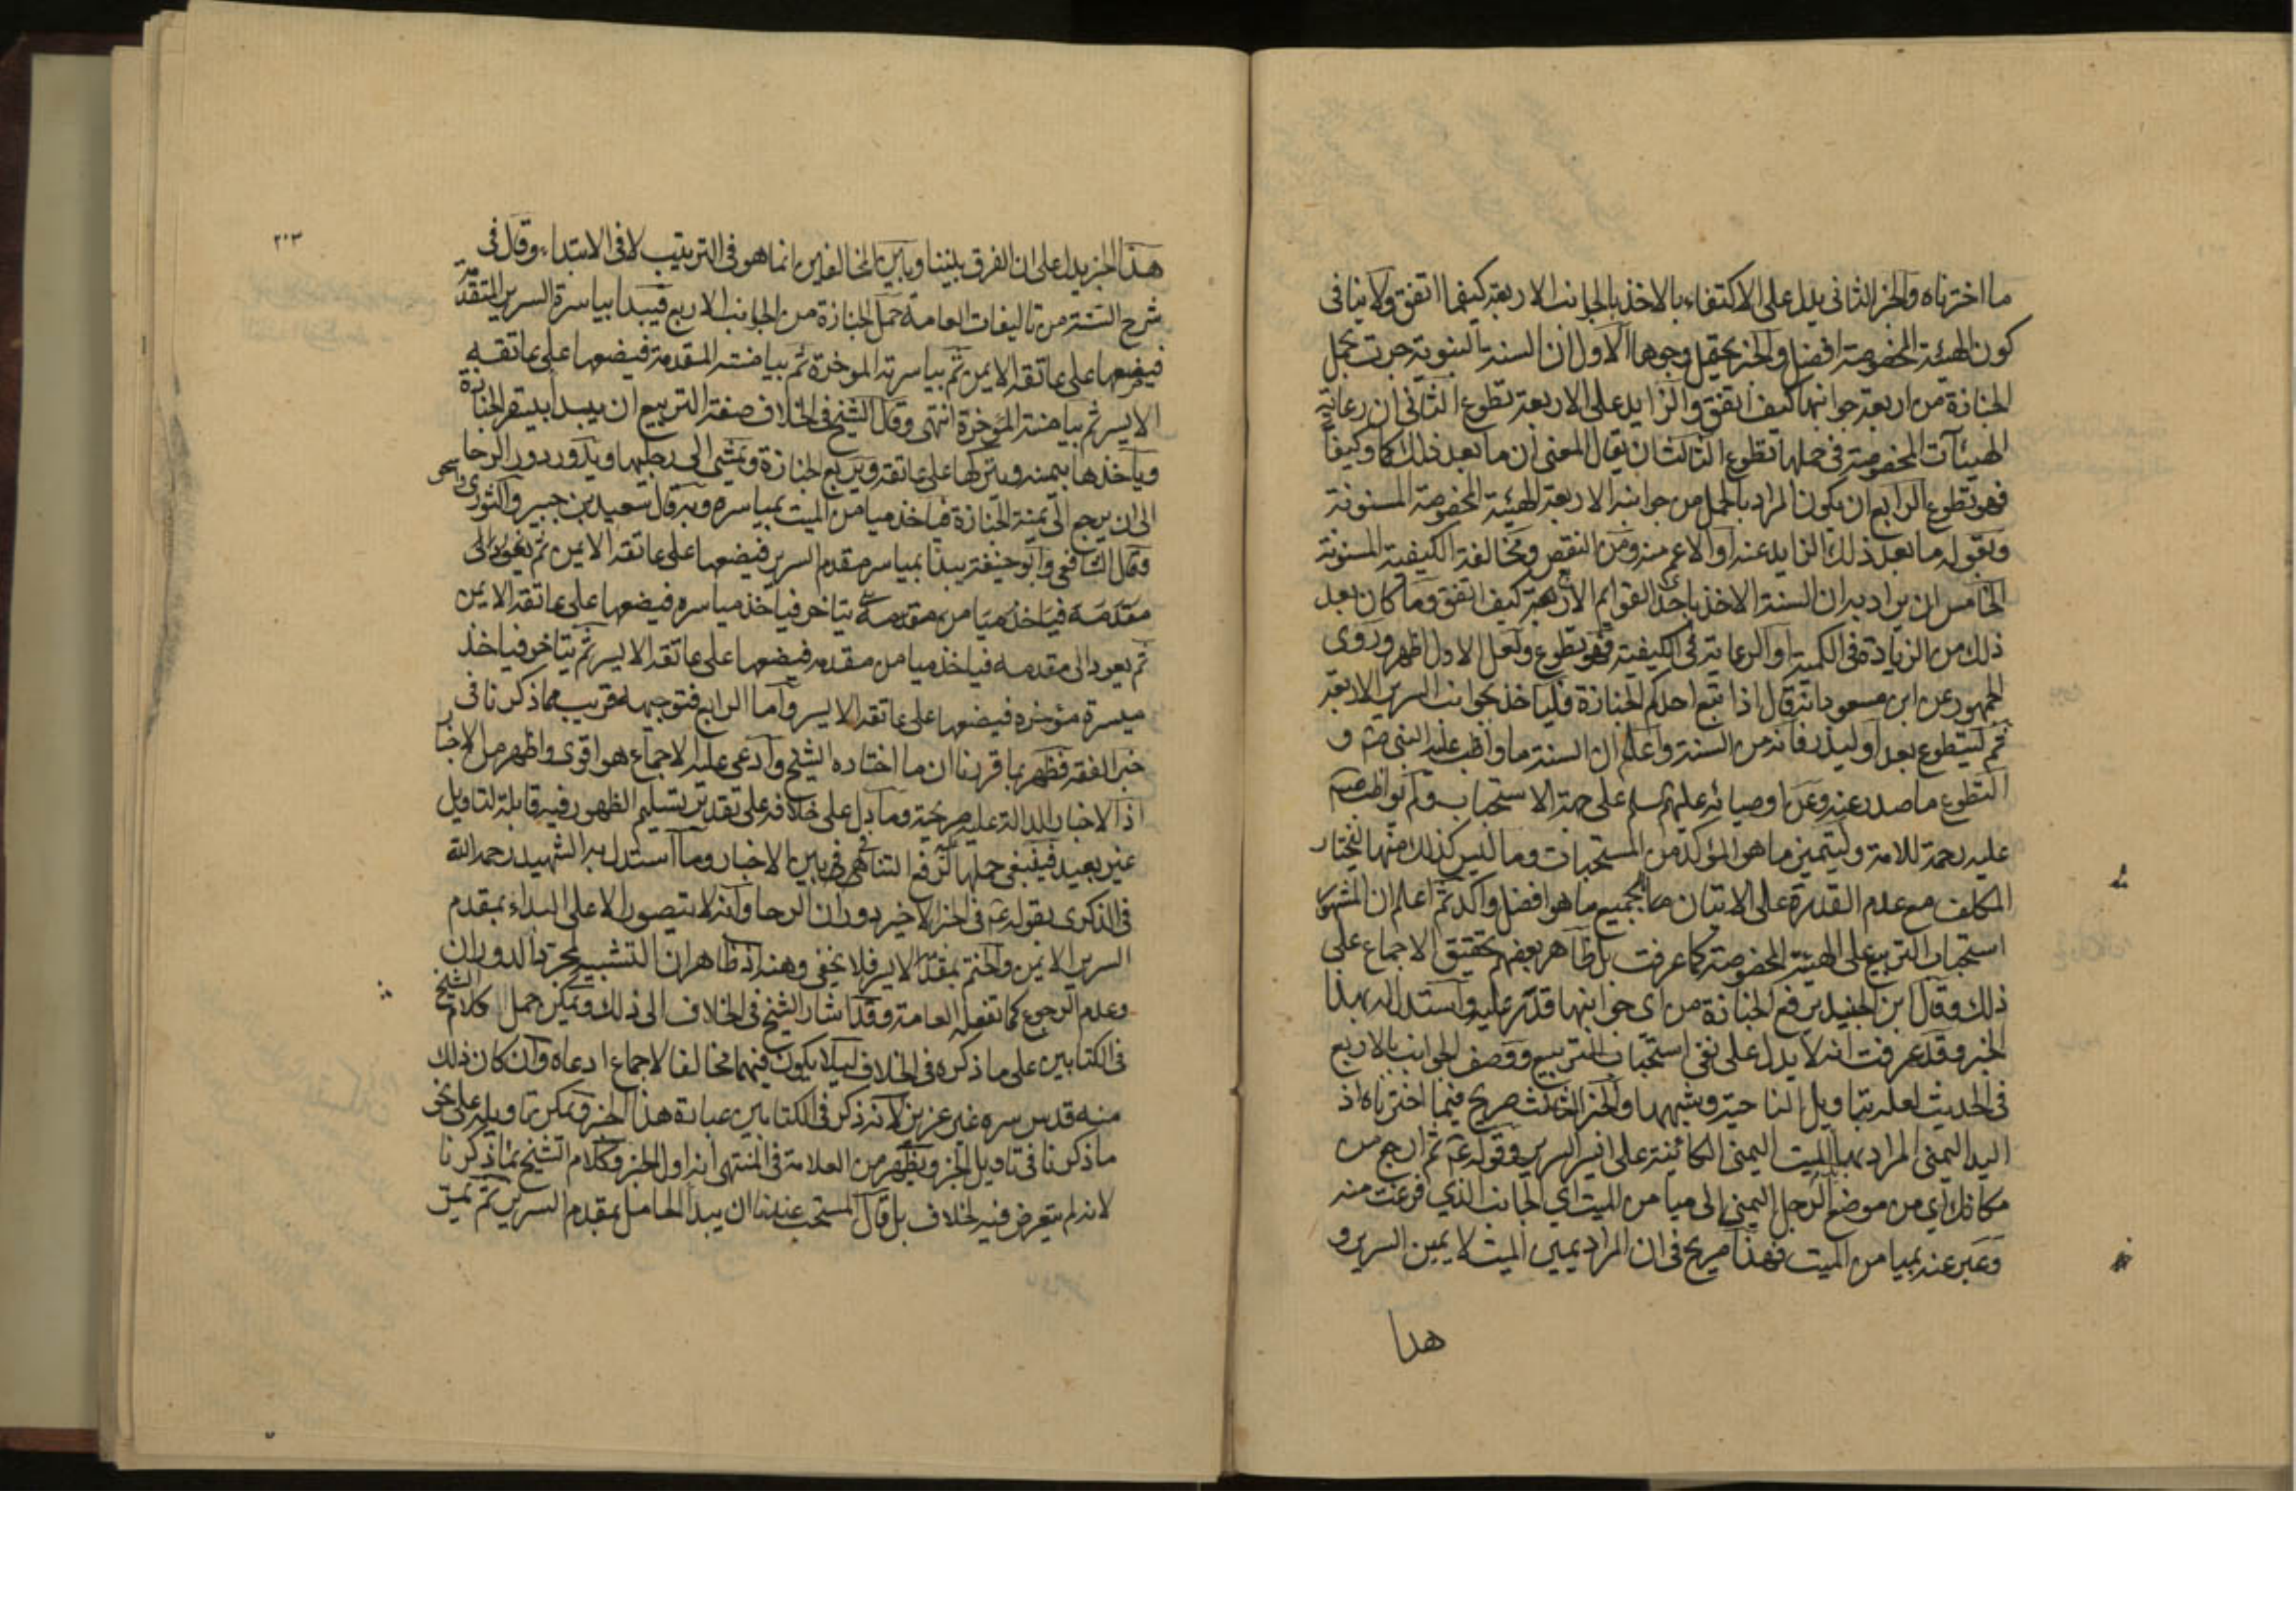 ما اخترناه والخبر الثانى يدل على الاكتفاء بالاخذ بالجوانب الاربعة كيفما اتفق ولا ينافى
كون الهيئة المخصوصة افضل والخبر يحتمل وجوها الاول ان السنة النبوية جرت بحمل
الجنازة من اربعة جوانبها كيف اتفق والزايد على الاربعة تطوع الثانى ان رعاية
الهيئآت المخصوصة فى حملها تطوع الثالث ان يقال المعنى ان ما بعد ذلك كما وكيفا
فهو تطوع الرابع ان يكون المراد بالحمل من جوانبه الاربعة الهيئة المخصوصة المسنونة
وبقوله ما بعد ذلك الزايد عنه او الاعم منه ومن النقص ومخالفة الكيفية المسنونة
الخامس ان يراد به ان السنة الاخذ باحد القوايم الاربعة كيف اتفق وما كان بعد
ذلك من الزيادة فى الكمية او الرعاية فى الكيفية فهو تطوع ولعل الاول اظهر وروى
الجمهور عن ابن مسعود انه قال اذا تبع احدكم الجنازة فلياخذ بجوانب السرير الاربعة
ثم ليتطوع بعد او ليذر فانه من السنة واعلم ان السنة ما واظب عليه النبى ص و
التطوع ما صدر عنه وعن اوصيائه عليهم سلم على جهة الاستحباب ولم يواظب
عليه رحمة للامة وليتميز ما هو المؤكد من المستحبات وما ليس كذلك منها ليختار
المكلف مع عدم القدرة على الاتيان بالجميع ما هو افضل واكد ثم اعلم ان المشهور
استحباب التربيع على الهيئة المخصوصة كما عرفت بل ظاهر بعضهم تحقيق الاجماع على
ذلك وقال ابن الجنيد يرفع الجنازة من اى جوانبها قدر عليه واستدل له بهذا
الخبر وقد عرفت انه لا يدل على نفى استحباب التربيع ووصف الجوانب بالاربع
فى الحديث لعله بتاويل الناحية وشبهها والخبر الثالث صريح فيما اخترناه اذ
اليد اليمنى المراد بها الميت اليمنى الكائنة على ايسر السرير وقوله ع ثم ارجع من
مكانك اي من موضع الرجل اليمنى الى ميامن الميت اي الجانب الذي فرغت منه
وعبر عنه بميامن الميت فهذا صريح فى ان المراد يمين الميت لا يمين السرير و
هدا
٢٠٣
هذا الخبر يدل على ان الفرق بيننا وبين المخالفين انما هو فى الترتيب لا فى الابتداء وقال فى
شرح السنة من تاليفات العامة حمل الجنازة من الجوانب الاربع فيبدا بياسرة السرير المتقدمة
فيضعها على عاتقه الايمن ثم بياسرته الموخرة ثم بيامنته المقدمة فيضعها على عاتقه
الايسر ثم بيامنته المؤخرة انتهى وقال الشيخ فى الخلاف صفة التربيع ان يبدأ بيسرة الجنازة
وياخذها بيمينه ويتركها على عاتقه ويربع الجنازة ويمشى الى رجليها ويدور دور الرحا
الى ان يرجع الى يمنة الجنازة فياخذ ميامن الميت بمياسره وبه قال سعيد بن جبير والثورى واسحق
وقال الشافعى وابو حنيفة يبدأ بمياسر مقدم السرير فيضعها على عاتقه الايمن ثم يعود الى
مقدمه فياخذ ميامن مقدمه يتاخر فياخذ مياسره فيضعها على عاتقه الايمن
ثم يعود الى مقدمه فياخذ ميامن مقدمه فيضعها على عاتقه الايسر ثم يتاخر فياخذ
ميسرة مؤخره فيضعها على عاتقه الايسر واما الرابع فتوجيهه قريب مما ذكرنا فى
خبر الفقه فظهر بما قررنا ان ما اختاره الشيخ وادعى عليه الاجماع هو اقوى واظهر من الاخبار
اذ الاخبار الدالة عليه صريحة وما دل على خلافه على تقدير تسليم الظهور فيه قابلة لتاويل
غير بعيد فينبغى حملها لرفع التنافى بين الاخبار وما استدل به الشهيد رحمه الله
فى الذكرى بقوله ع فى الخبر الاخير دوران الرحا وانه لا يتصور الا على البداء بمقدم
السرير الايمن والختم بمقدم الايسر فلا يخفى وهنه اذ ظاهر ان التشبيه لمجرد الدوران
وعدم الرجوع كما تفعله العامة وقد اشار الشيخ فى الخلاف الى ذلك ويمكن حمل كلام الشيخ
فى الكتابين على ما ذكره فى الخلاف ليلا يكون فيهما مخالفا لاجماع ادعاه وان كان ذلك
منه قدس سره غير عزيز لانه ذكر فى الكتابين عبارة هذا الخبر ويمكن تاويله على نحو
ما ذكرنا فى تاويل الخبر ويظهر من العلامة فى المنتهى انه اول الخبر وكلام الشيخ بما ذكرنا
لانه لم يتعرض فيه لخلاف بل قال المستحب عندنا ان يبدا الحامل بمقدم السرير ثم يمر